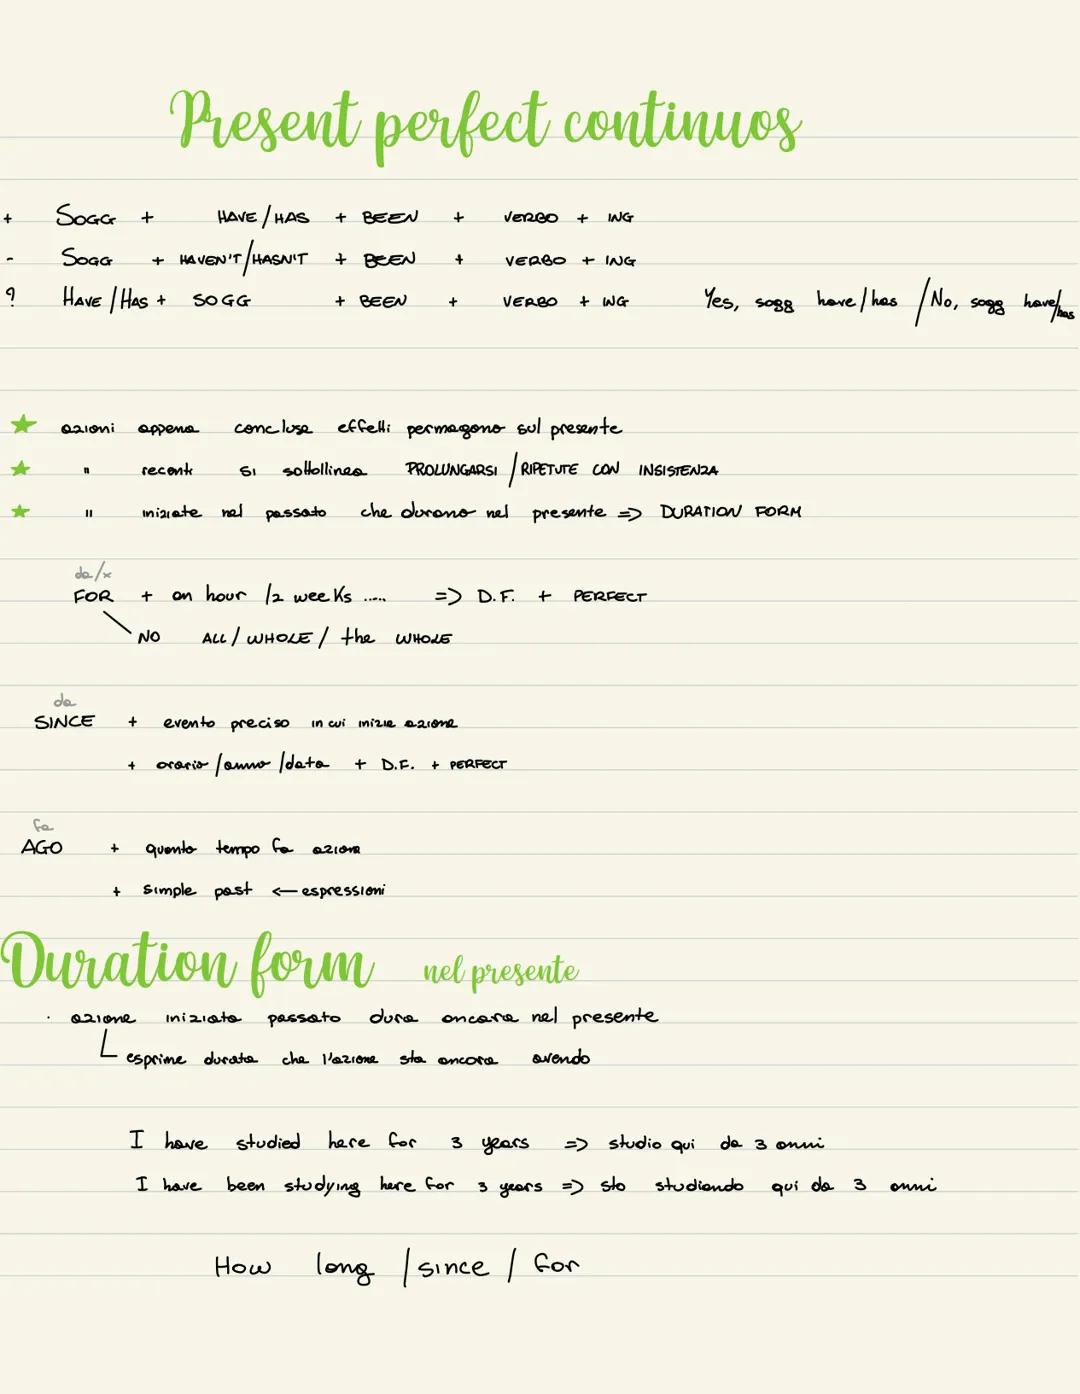 Present perfect continuos
+ SOGG + HAVE/HAS + BEEN + VERBO + ING
- SOGG + HAVEN'T/HASN'T + BEEN + VERBO + ING
? HAVE/HAS + SOGG + BEEN + VERBO + ING Yes, sogg have/has / No, sogg have/has
★ azioni appena concluse effetti permagono sul presente
★ " recenti si sottollinea PROLUNGARSI / RIPETUTE CON INSISTENZA
★ " iniziate nel passato che durano nel presente => DURATION FORM
da/x
FOR + an hour /2 weeks ..... => D.F. + PERFECT
NO ALL / WHOLE / the WHOLE
da
SINCE + evento preciso in cui inizia azione
+ orario /anno /data + D.F. + PERFECT
fa
AGO + quanto tempo fa azione
+ simple past <- espressioni
Duration form nel presente
· azione iniziata passato dura ancora nel presente
esprime durata che l'azione sta ancora avendo
I have studied here for 3 years => studio qui da 3 anni
I have been studying here for 3 years => sto studiando qui da 3 anni
How long / since / for